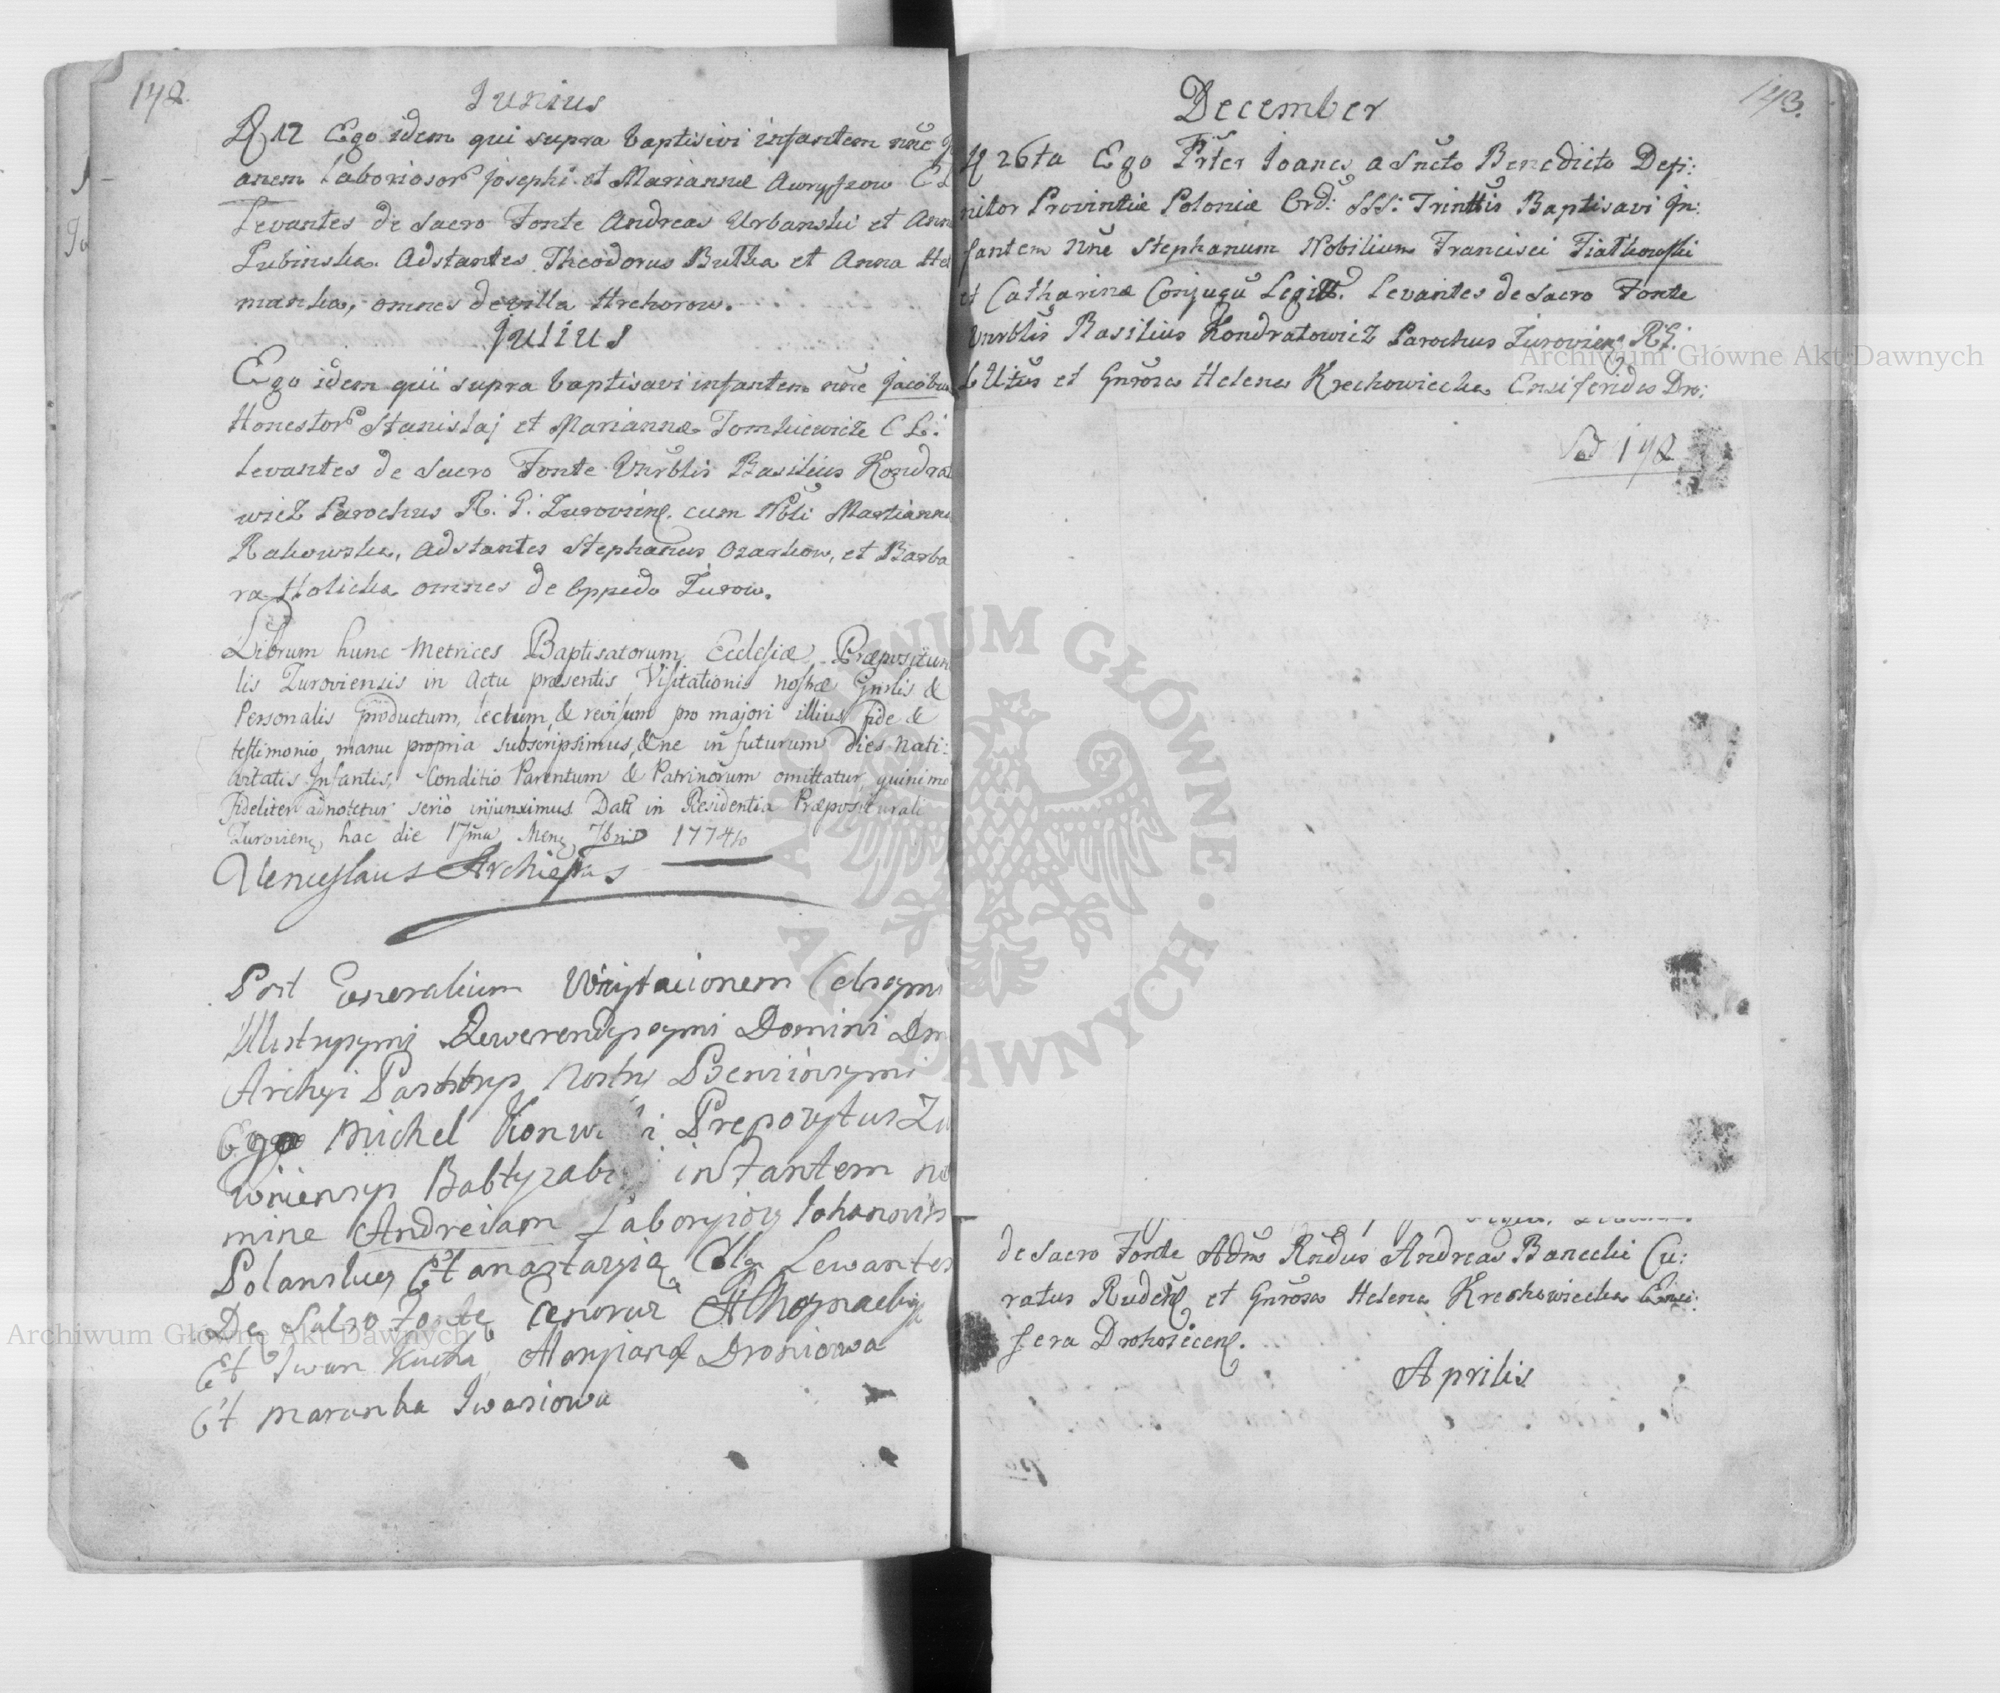 142.
Junius
D 12 Ego idem qui supra baptisivi infantem nñe
anem Laboriosor Josephi et Mariannæ Awryszow C L
Levantes de Sacro Fonte Andreas Urbanski et Ann
Lubinska. Adstantes Theodorus Butka et Anna Het
manka, omnes de villa Hrehorow.
Julius
Ego idem qui supra baptisavi infantem nñe Jacobu
Honestor Stanislaj et Mariannæ Tomkiewicz C L:
Levantes de Sacro Fonte Vnrblis Basilius Kondra
wicz Parochus R: G: Zuroviens. cum Nbli Marianna
Rakowska, Adstantes Stephanus Ozarkow, et Barba
ra Holicka omnes de oppido Zurow.
Librum hunc Metrices Baptisatorum Ecclesiæ Præpositura
lis Zuroviensis in Actu præsentis Visitationis nostræ Gnrlis &
Personalis productum, lectum, & revisum pro majori illius fide &
testimonio manu propria subscripsimus, & ne in futurum dies Nati:
vitatis Infantis, Conditio Parentum & Patrinorum omittatur quinimo
fideliter adnotetur serio injunximus Datt in Residentia Præpositurali
Zurovien, hac die 17ma Mens 7bris 1774to
Venceslaus Archieppus
Post Generalium Wizytacionem Celszymi
Illustrysymi Rewerendysymi Domini Dni
Archyi Pastorys Nostri Beniiowsymi
Ego Michel Konw i Prepozytus Zu
wiiensys Babtyzab infantem no
mine Andreiam Laboryiozy Iohanowis
Polanskiey Et anastazyia Lewantes
De Sakro Fonte
Et Iwan Kucha, Maryiana Droniowa
Et Marunka Iwasiowa
143.
December
D 26ta Ego Frter Joanes a Sncto Benedicto Defi:
nitor Provintiæ Poloniæ Ord: SSS: Trinttis Baptisavi In:
fantem Nñe Stephanum Nobilium Francisci Fiałkowski
et Catharinæ Conjugu Legitt. Levantes de Sacro Fonte
Vnrblis Basilius Kondratowicz Parochus Zurovien R G:
L Utus et Gnrosa Helena Krechowiecka Ensiferides Dro:
Vid 142
de Sacro Fonte Adms Rndus Andreas Banecki Cu:
ratus Ruden et Gnrosa Helena Krechowiecka Ensi:
fera Drohoiecens.
Aprilis
Archiwum Główne Akt Dawnych
Archiwum Główne Akt Dawnych
ARCHIWUM GŁÓWNE · AKT DAWNYCH ·